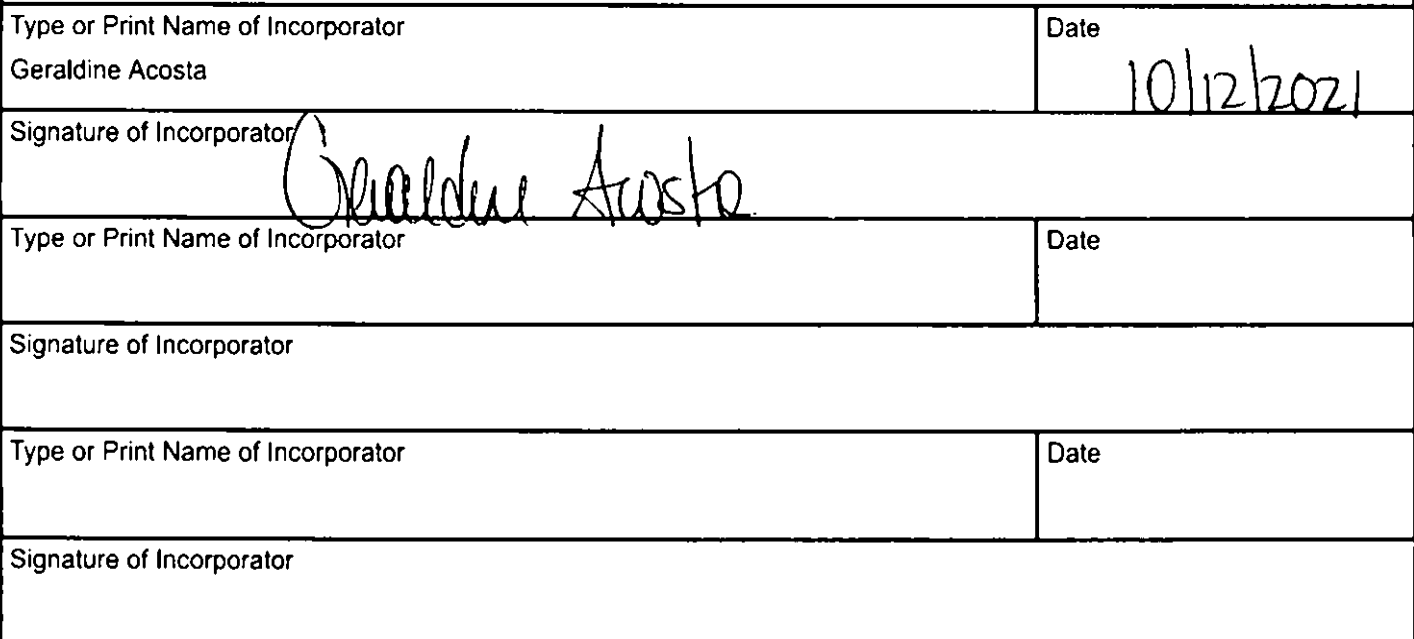 Type or Print Name of Incorporator
Date
Geraldine Acosta
10/12/2021
Signature of Incorporator
Geraldine Acosta
Type or Print Name of Incorporator
Date
Signature of Incorporator
Type or Print Name of Incorporator
Date
Signature of Incorporator